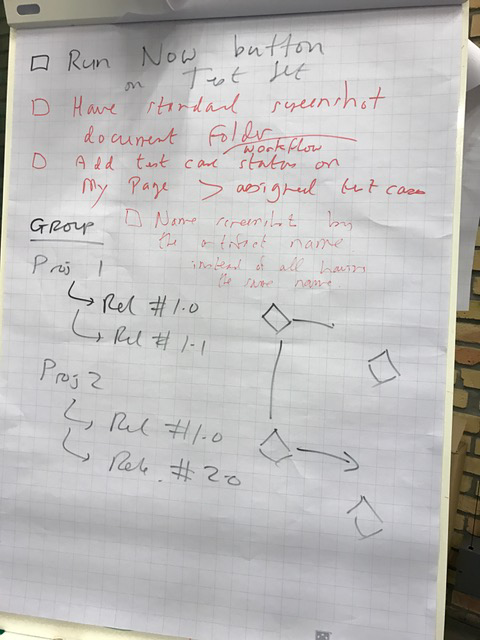 Run Now button
on Test Set
Have standard screenshot
document folder
workflow
Add test case status on
My Page > assigned test cases
Name screenshot by
the artifact name
instead of all having
the same name
GROUP
Proj 1
Rel #1.0
Rel #1.1
Proj 2
Rel #1.0
Rele. #2.0